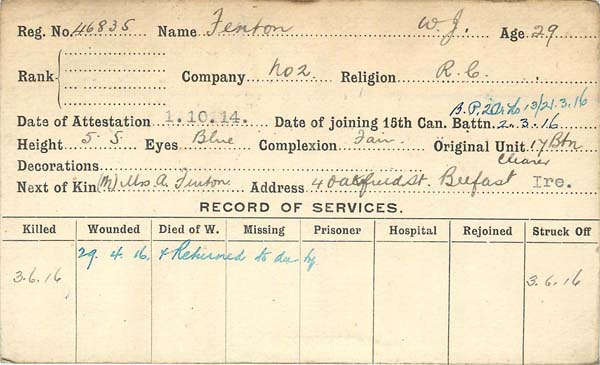 Reg. No. 46835 Name Fenton W. J. Age 29
Rank Company No 2. Religion R. C.
B.P.2 13/21.3.16
Date of Attestation 1.10.14. Date of joining 15th Can. Battn. 2.3.16.
Height 5. 5. Eyes Blue Complexion Fair Original Unit 17 Btn
Decorations
Next of Kin (M) Mrs A. Fenton Address 4 Oakfield St. Belfast Ire.
RECORD OF SERVICES.
Killed Wounded Died of W. Missing Prisoner Hospital Rejoined Struck Off
29. 4. 16. & Returned to duty
3.6.16 3.6.16